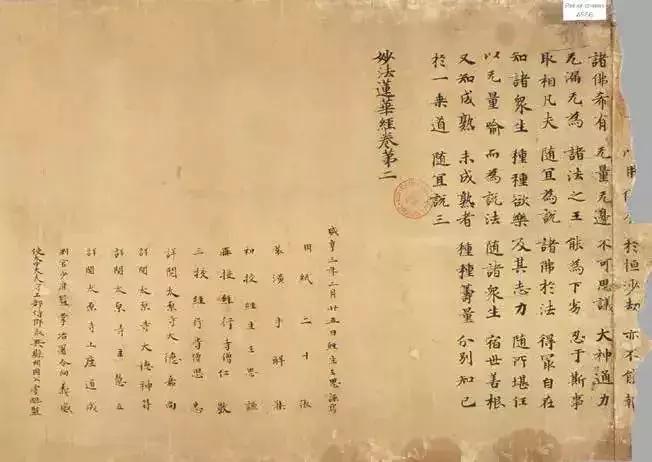 於恒沙劫 亦不能報
諸佛希有 无量无邊 不可思議 大神通力
无漏无為 諸法之王 能為下劣 忍于斯事
取相凡夫 隨宜為說 諸佛於法 得冣自在
知諸衆生 種種欲樂 及其志力 隨所堪任
以无量喻 而為說法 隨諸衆生 宿世善根
又知成熟 未成熟者 種種籌量 分別知已
於一乘道 隨宜說三
妙法蓮華經卷第二
咸亨三年二月廿五日經生王思謙寫
用紙二十張
裝潢手解集
初校經生王思謙
再校經行寺僧仁敬
三校經行寺僧思忠
詳閱太原寺大德嘉尚
詳閱太原寺大德神苻
詳閱太原寺主慧立
詳閱太原寺上座道成
判官少府監掌冶署令向義感
使太中大夫守工部侍郎永興縣開國公虞昶監